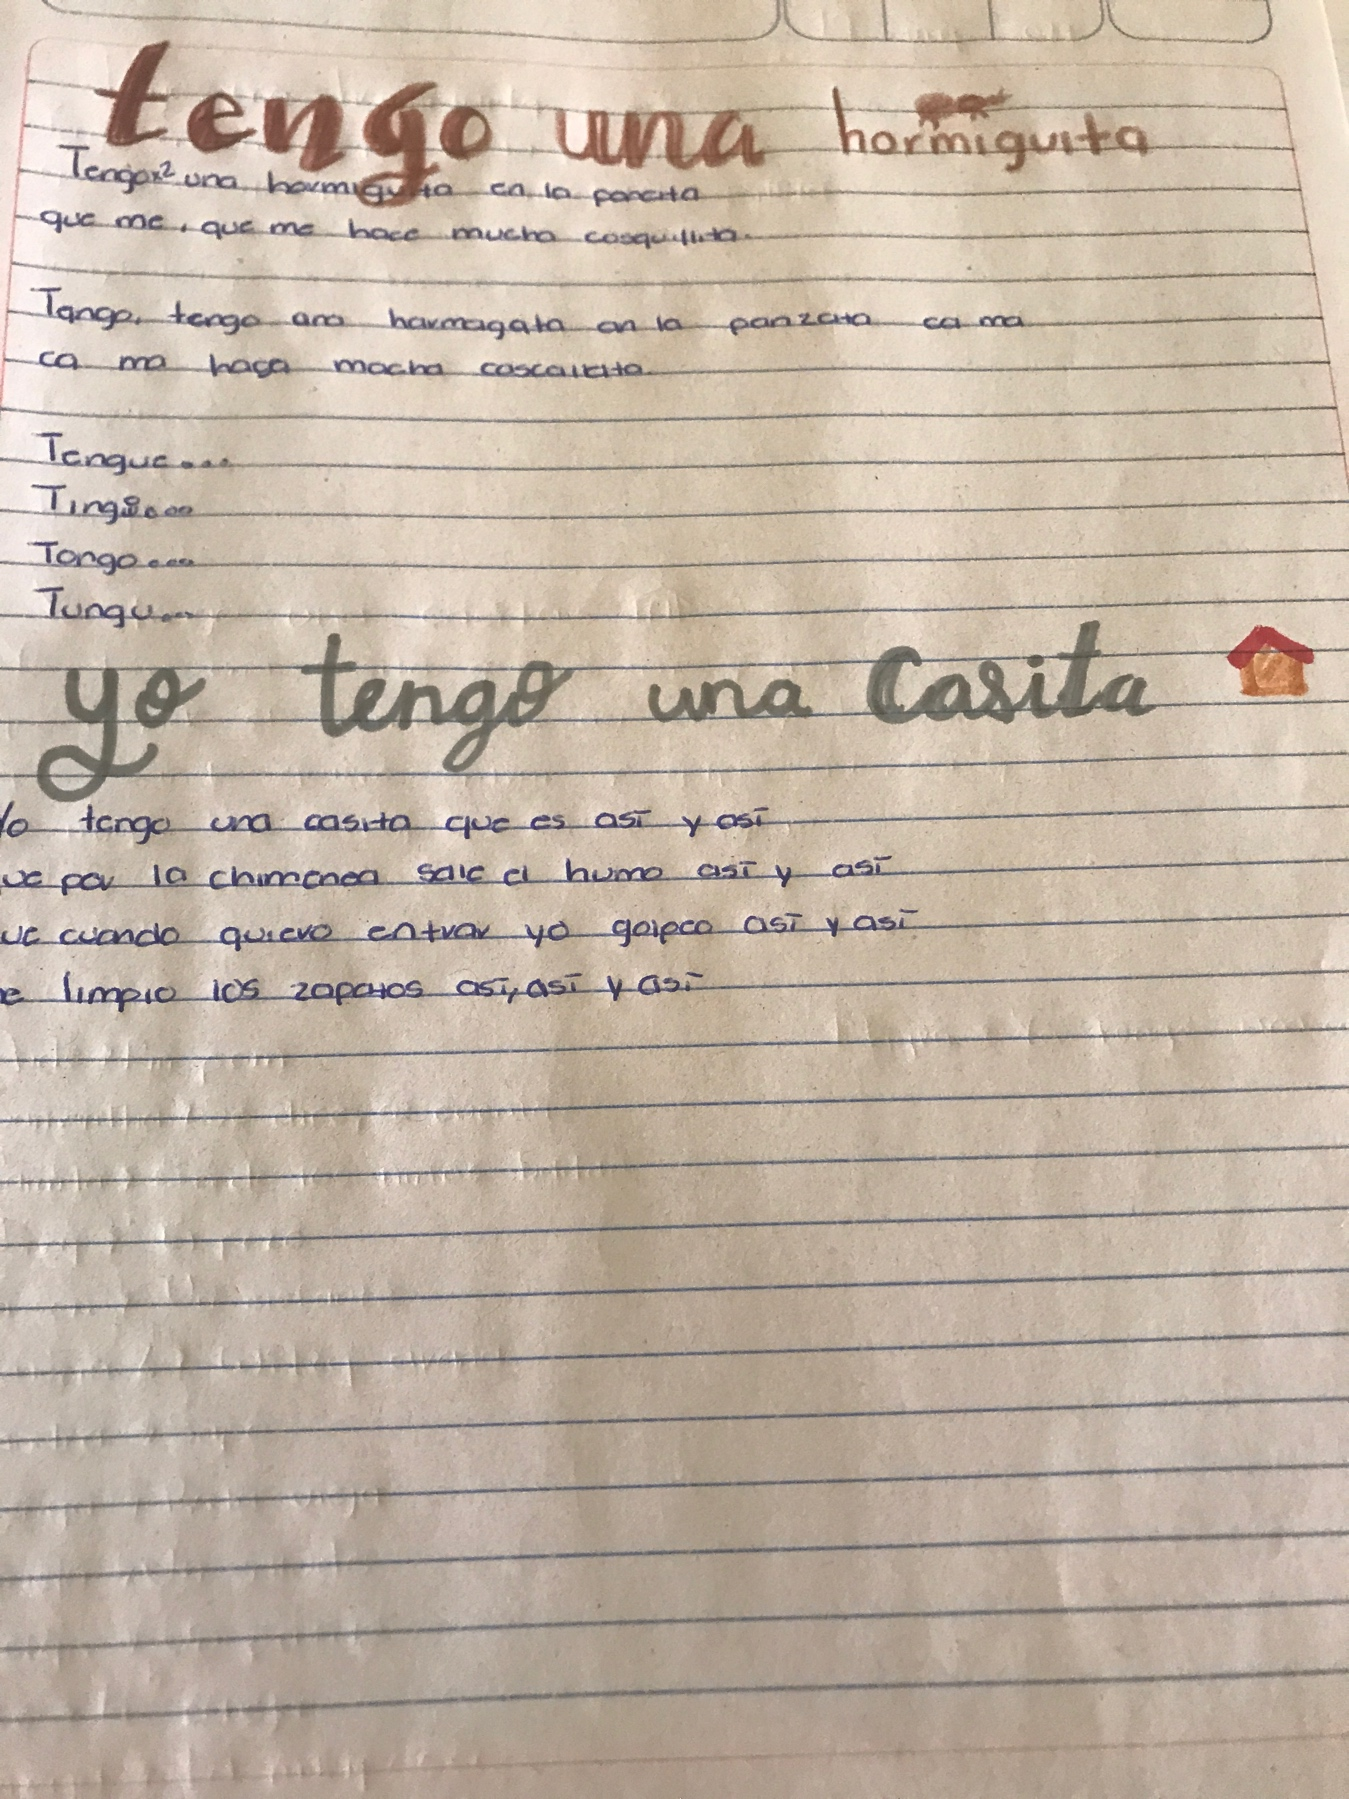 tengo una hormiguita
Tengox2 una hormiguita en la pancita
que me, que me hace mucha cosquillita.
Tango, tengo ana harmagata an la panzata ca ma
ca ma haça macha cascallata
Tengue...
Tingüi...
Tongo...
Tungu...
yo tengo una Casita
Yo tengo una casita que es así y así
ue por la chimenea sale el humo así y así
ue cuando quiero entrar yo golpeo así y así
e limpio los zapatos así, así y así